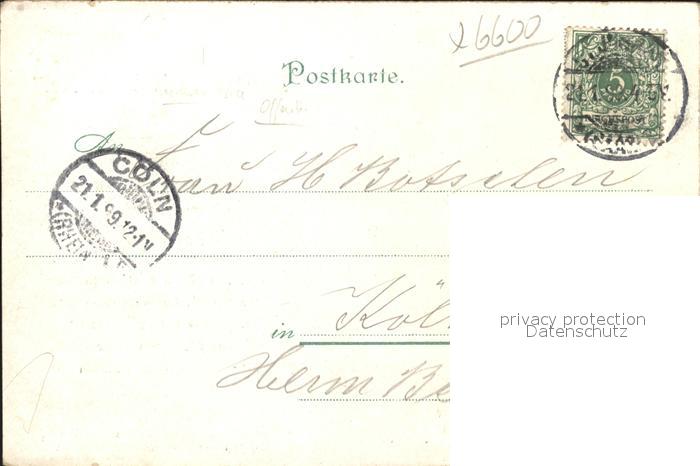 x6600
Postkarte.
5
REICHSPOST
An Frau H Botschen
CÖLN
21.1.99.12-1N
(RHEIN)
in Köl
Herm Be
privacy protection
Datenschutz